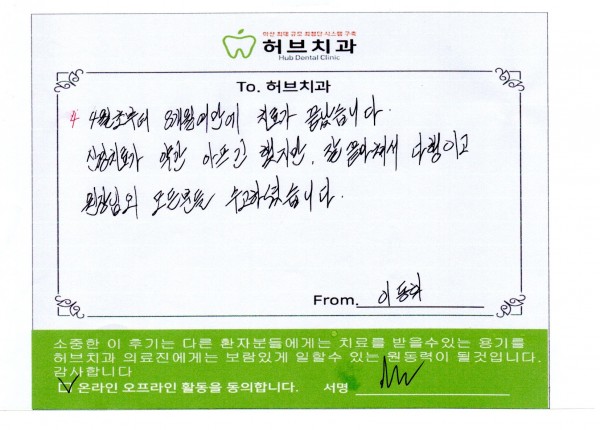 아산 최대 규모 최첨단 시스템 구축
허브치과
Hub Dental Clinic
To. 허브치과
4월초부터 8개월여만에 치료가 끝났습니다.
신경치료가 약간 아프긴 했지만, 잘 끝나서 다행이고
원장님외 모든분들 수고하셨습니다.
From. 이동
소중한 이 후기는 다른 환자분들에게는 치료를 받을수있는 용기를
허브치과 의료진에게는 보람있게 일할수 있는 원동력이 될것입니다.
감사합니다
온라인 오프라인 활동을 동의합니다. 서명